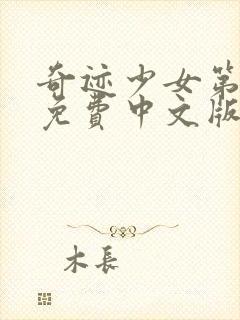 奇迹少女第
免費中文版
木長